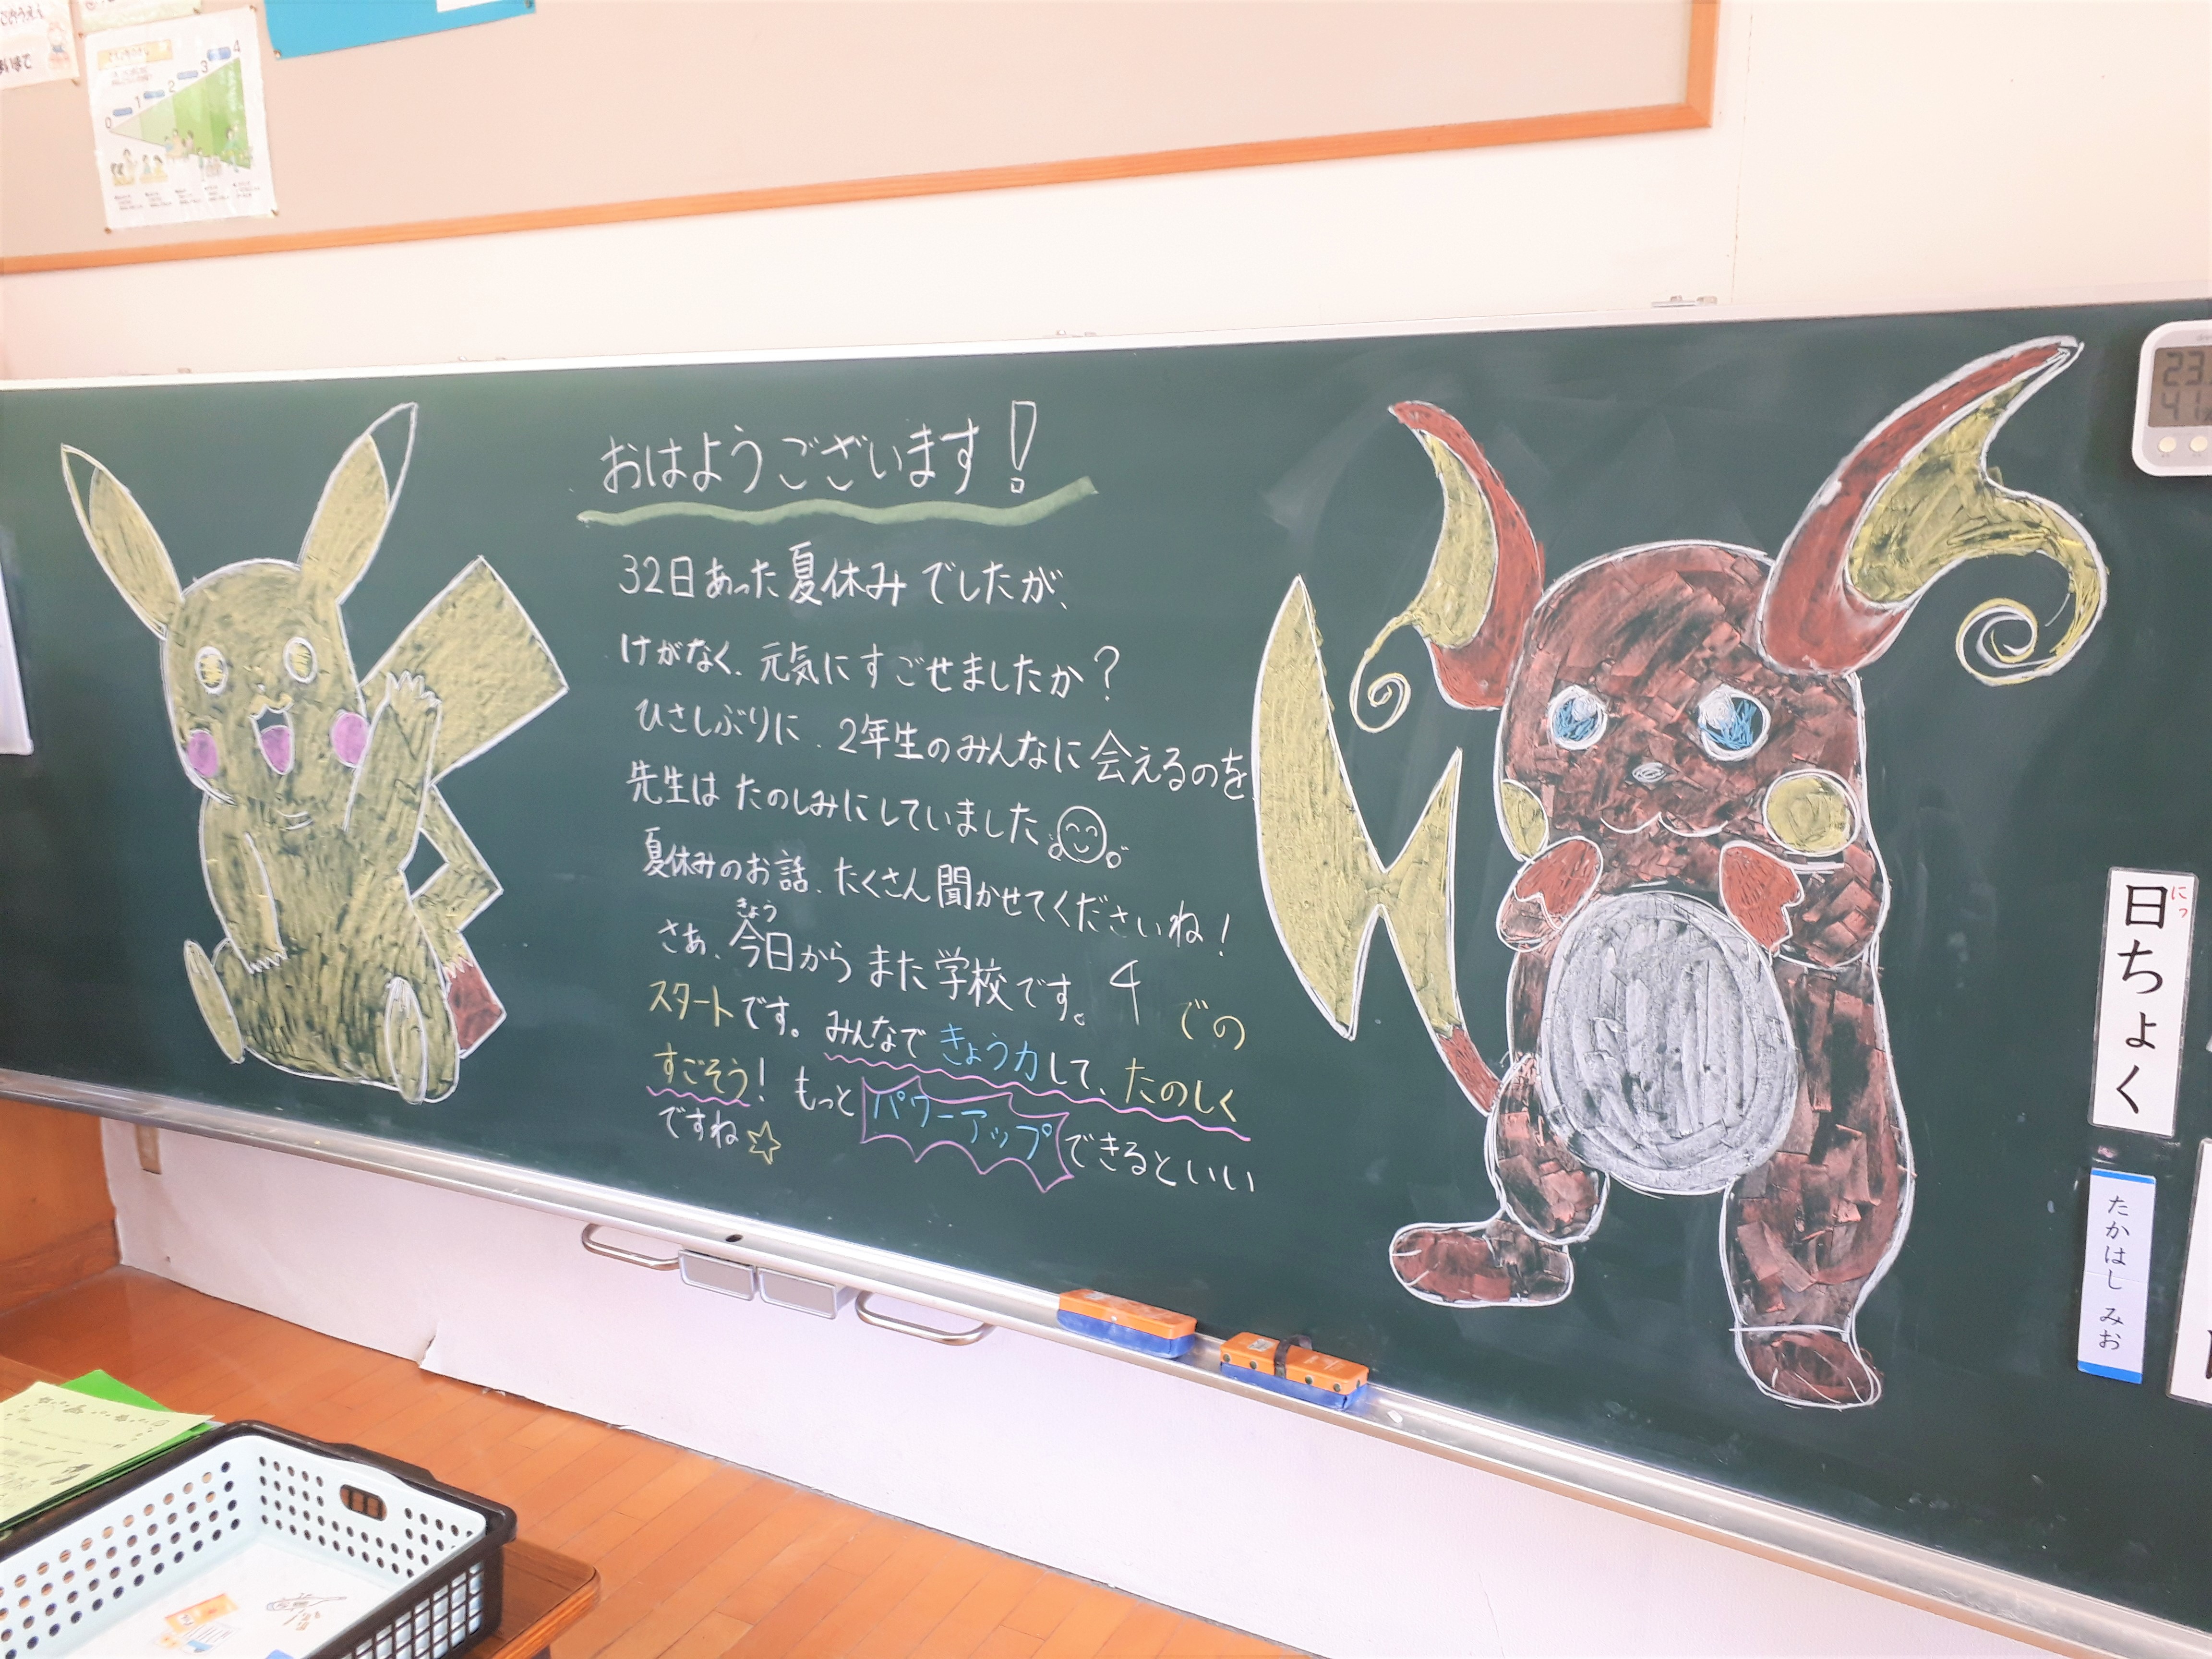 おはようございます！
32日あった夏休みでしたが、
けがなく、元気にすごせましたか？
ひさしぶりに、2年生のみんなに会えるのを
先生はたのしみにしていました
夏休みのお話、たくさん聞かせてくださいね！
きょう
さあ、今日からまた学校です。4での
スタートです。みんなできょう力して、たのしく
すごそう！もっとパワーアップできるといい
ですね☆
日ちょく
にっ
たかはし みお
23
0 1 2 3 4